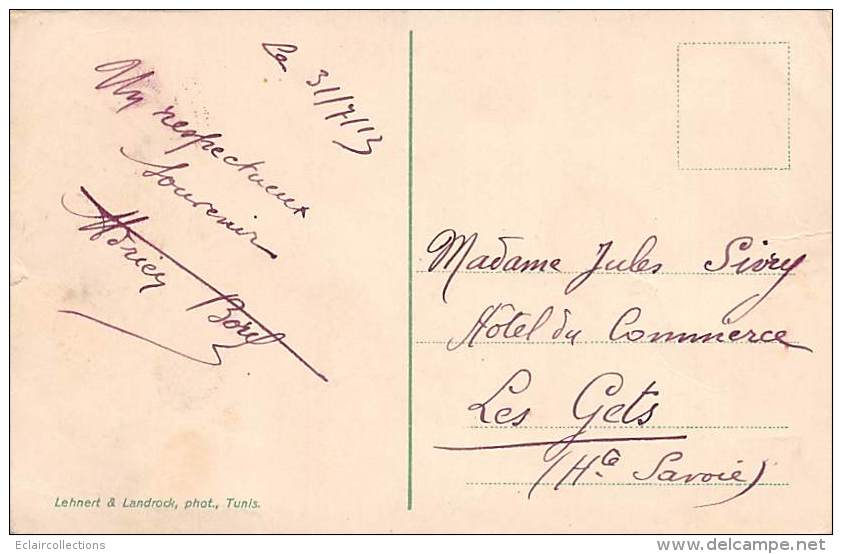 le 31/7/13
Un respectueux
souvenir
Adrien Borel
Madame Jules Sivry
Hôtel du Commerce
Les Gets
(Hte Savoie)
Lehnert & Landrock, phot., Tunis.
Eclaircollections
www.delcampe.net